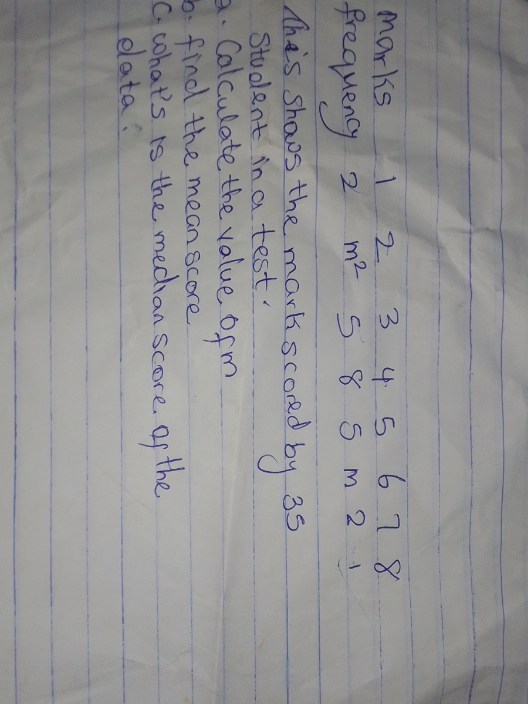 marks 1 2 3 4 5 6 7 8
frequency 2 m² 5 8 5 m 2 1
This shows the mark scored by 35
student in a test.
a. Calculate the value of m
b. find the mean score
c. what's is the median score of the
data.